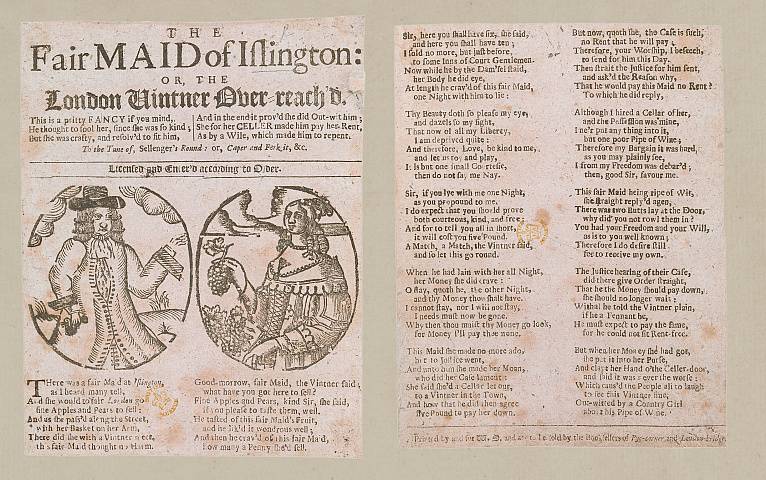 THE
Fair MAID of Islington:
OR, THE
London Vintner Over-reach'd.
This is a pritty FANCY if you mind,
He thought to fool her, since she was so kind;
But she was crafty, and resolv'd to fit him,
And in the end it prov'd she did Out-wit him;
She for her CELLER made him pay her Rent,
As by a Wile, which made him to repent.
To the Tune of, Sellenger's Round: or, Caper and Ferk it, &c.
Licensed and Enter'd according to Order.
There was a fair Maid at Islington,
as I heard many tell,
And she would to fair London go
fine Apples and Pears to sell:
And as she pass'd along the Street,
with her Basket on her Arm,
There did she with a Vintner meet,
this fair Maid thought no Harm.
Good-morrow, fair Maid, the Vintner said,
what have you got here to sell?
Fine Apples and Pears, kind Sir, she said,
if you please to taste them, well.
He tasted of this fair Maid's Fruit,
and he lik'd it wondrous well;
And then he crav'd of this fair Maid,
how many a Penny she'd sell.
Sir, here you shall have six, she said,
and here you shall have ten;
I sold no more, but just before,
to some Inns of Court Gentlemen.
Now while he by the Dam'sel staid,
her Body he did eye,
At length he crav'd of this fair Maid,
one Night with him to lie:
Thy Beauty doth so please my eye,
and dazels so my sight,
That now of all my Liberty,
I am deprived quite:
And therefore, Love, be kind to me,
and let us toy and play,
It is but one small Courtesie,
then do not say me Nay.
Sir, if you lye with me one Night,
as you propound to me,
I do expect that you should prove
both courteous, kind, and free;
And for to tell you all in short,
it will cost you five Pound.
A Match, a Match, the Vintner said,
and so let this go round.
When he had lain with her all Night,
her Money she did crave:
O stay, quoth he, the other Night,
and thy Money thou shalt have.
I cannot stay, nor I will not stay,
I needs must now be gone.
Why then thou must thy Money go look,
for Money I'll pay thee none.
This Maid she made no more ado,
but to Justice went,
And unto him she made her Moan,
who did her Case lament:
She said she'd a Celler let out,
to a Vintner in the Town,
And how that he did then agree
five Pound to pay her down.
But now, quoth she, the Case is such,
no Rent that he will pay;
Therefore, your Worship, I beseech,
to send for him this Day.
Then strait the Justice for him sent,
and ask'd the Reason why,
That he would pay this Maid no Rent?
To which he did reply,
Although I hired a Celler of her,
and the Possession was mine,
I ne'r put any thing into it,
but one poor Pipe of Wine;
Therefore my Bargain it was hard,
as you may plainly see,
I from my Freedom was debar'd;
then, good Sir, favour me.
This fair Maid being ripe of Wit,
she straight reply'd agen,
There was two Butts lay at the Door,
why did you not rowl them in?
You had your Freedom and your Will,
as is to you well known;
Therefore I do desire still
for to receive my own.
The Justice hearing of their Case,
did there give Order straight,
That he the Money should pay down,
she should no longer wait:
Withal he told the Vintner plain,
if he a Tennant be,
He must expect to pay the same,
for he could not sit Rent-free.
But when her Money she had got,
she put it into her Purse,
And clapt her Hand o'the Celler-door,
and said it was never the worse:
Which caus'd the People all to laugh
to see this Vintner fine,
Out-witted by a Country Girl
about his Pipe of Wine.
Printed by and for W. O. and are to be sold by the Booksellers of Pye-corner and London-bridge.